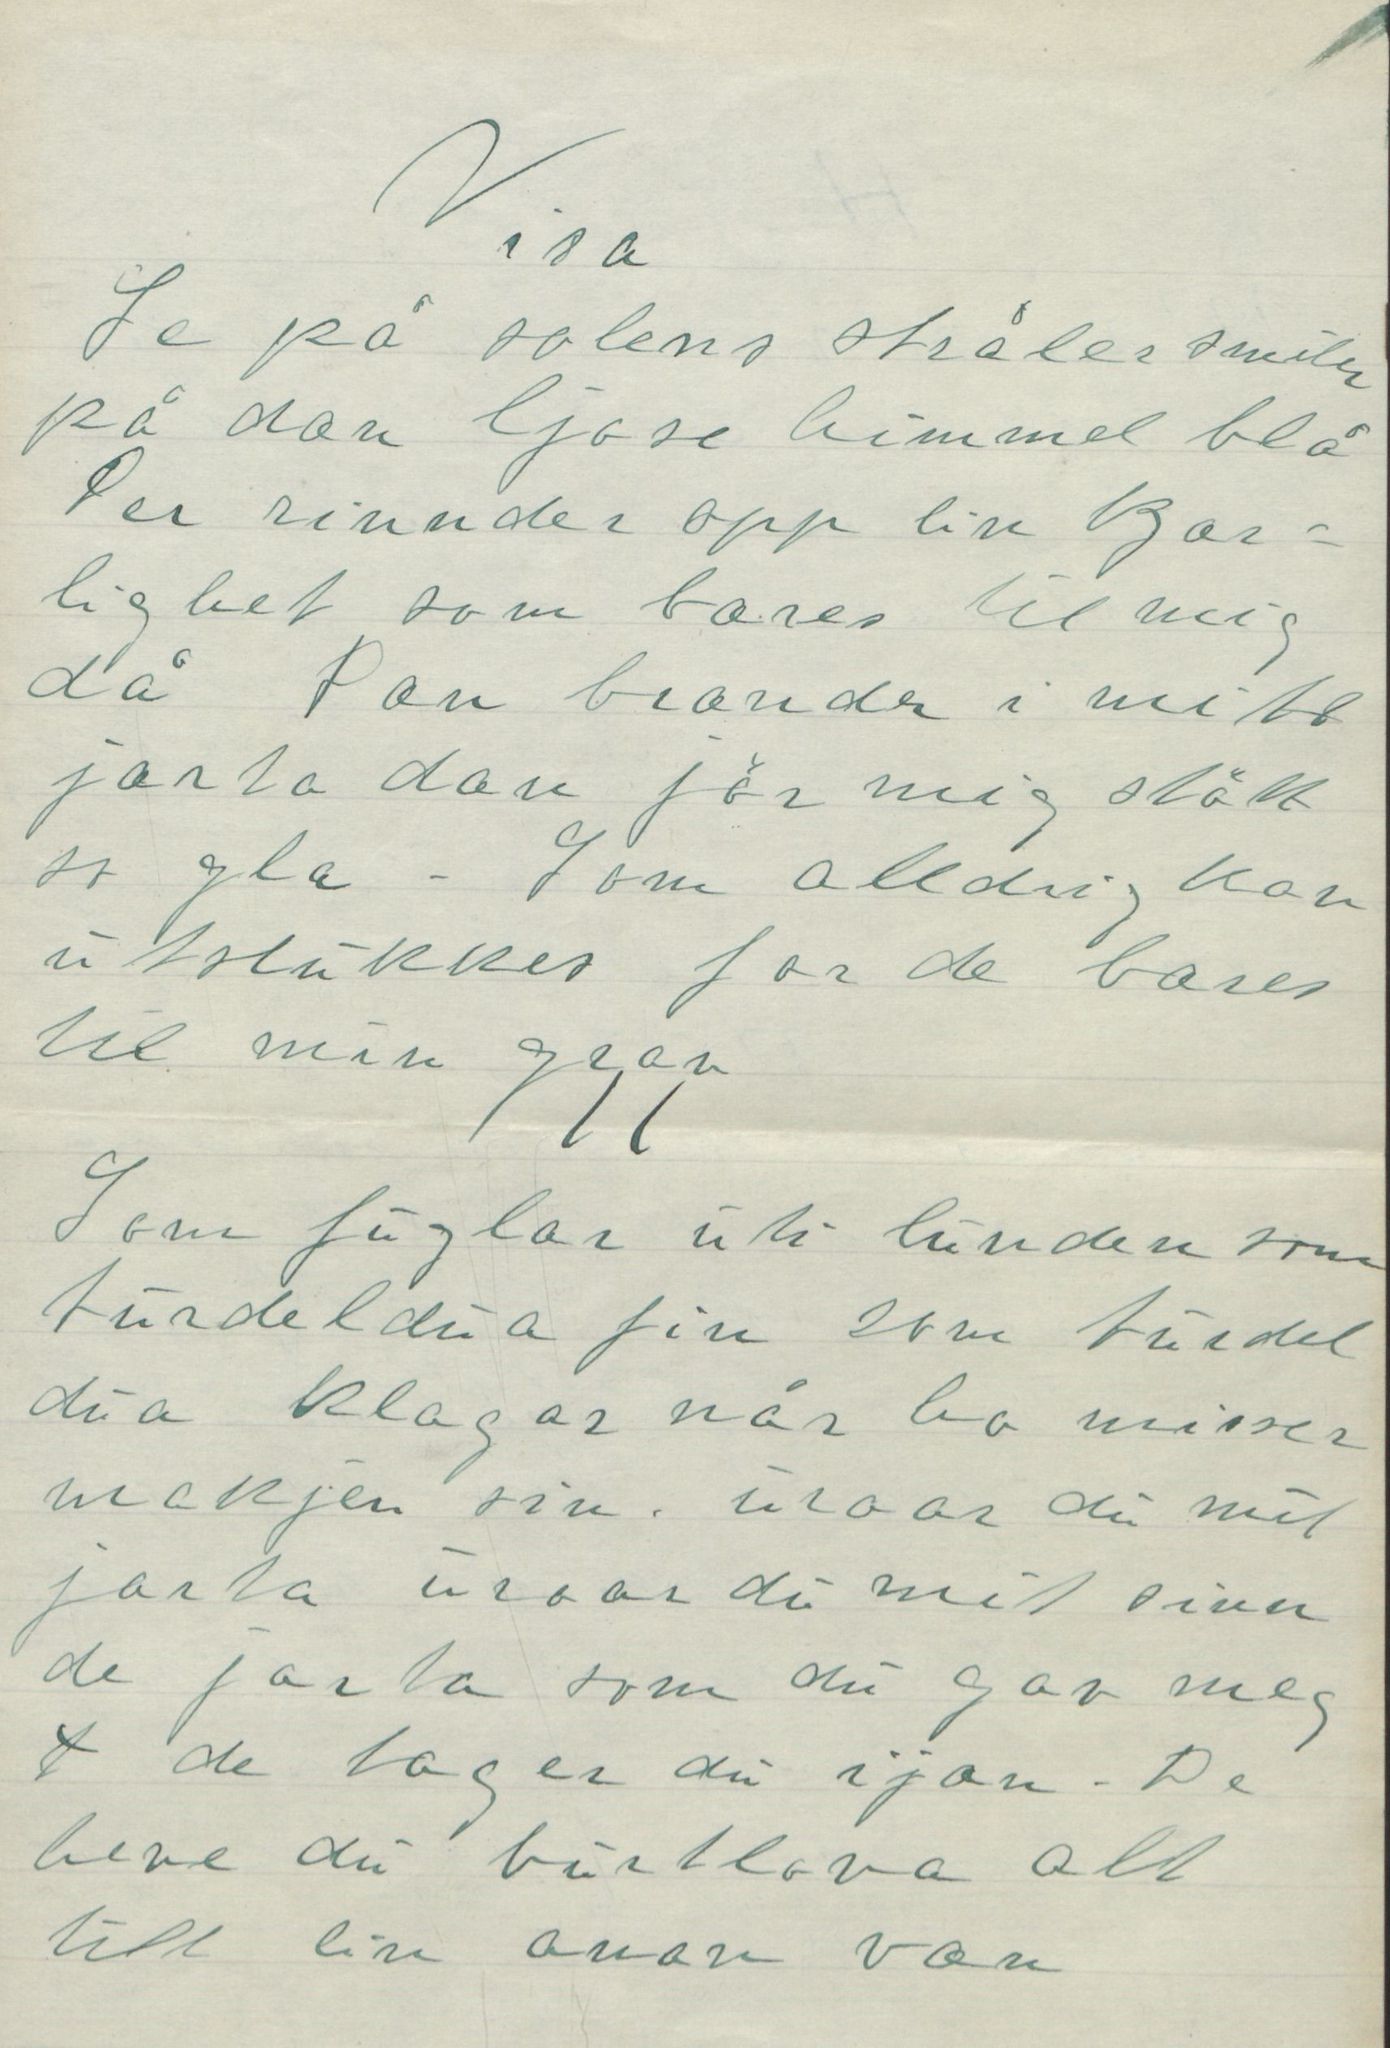 Visa
Se på solens stråler smiler
på dan ljose himmel blå
Der rinnder opp ein kjær-
lighet som bæres til mig
då Dan brænder i mitt
jarta dan jör mig stött
so gla - Som alldrig kan
utslukkes for de bæres
til min grav
II
Som fuglar uti lunden som
turdeldua fin som turdel
dua klagar når ho misser
makjen sin. uroar du mit
jarta uroar du mit sinn
de jarta som du gav meg
+ de tager du ijæn - De
heve du burtlova alt
till ein anan væn